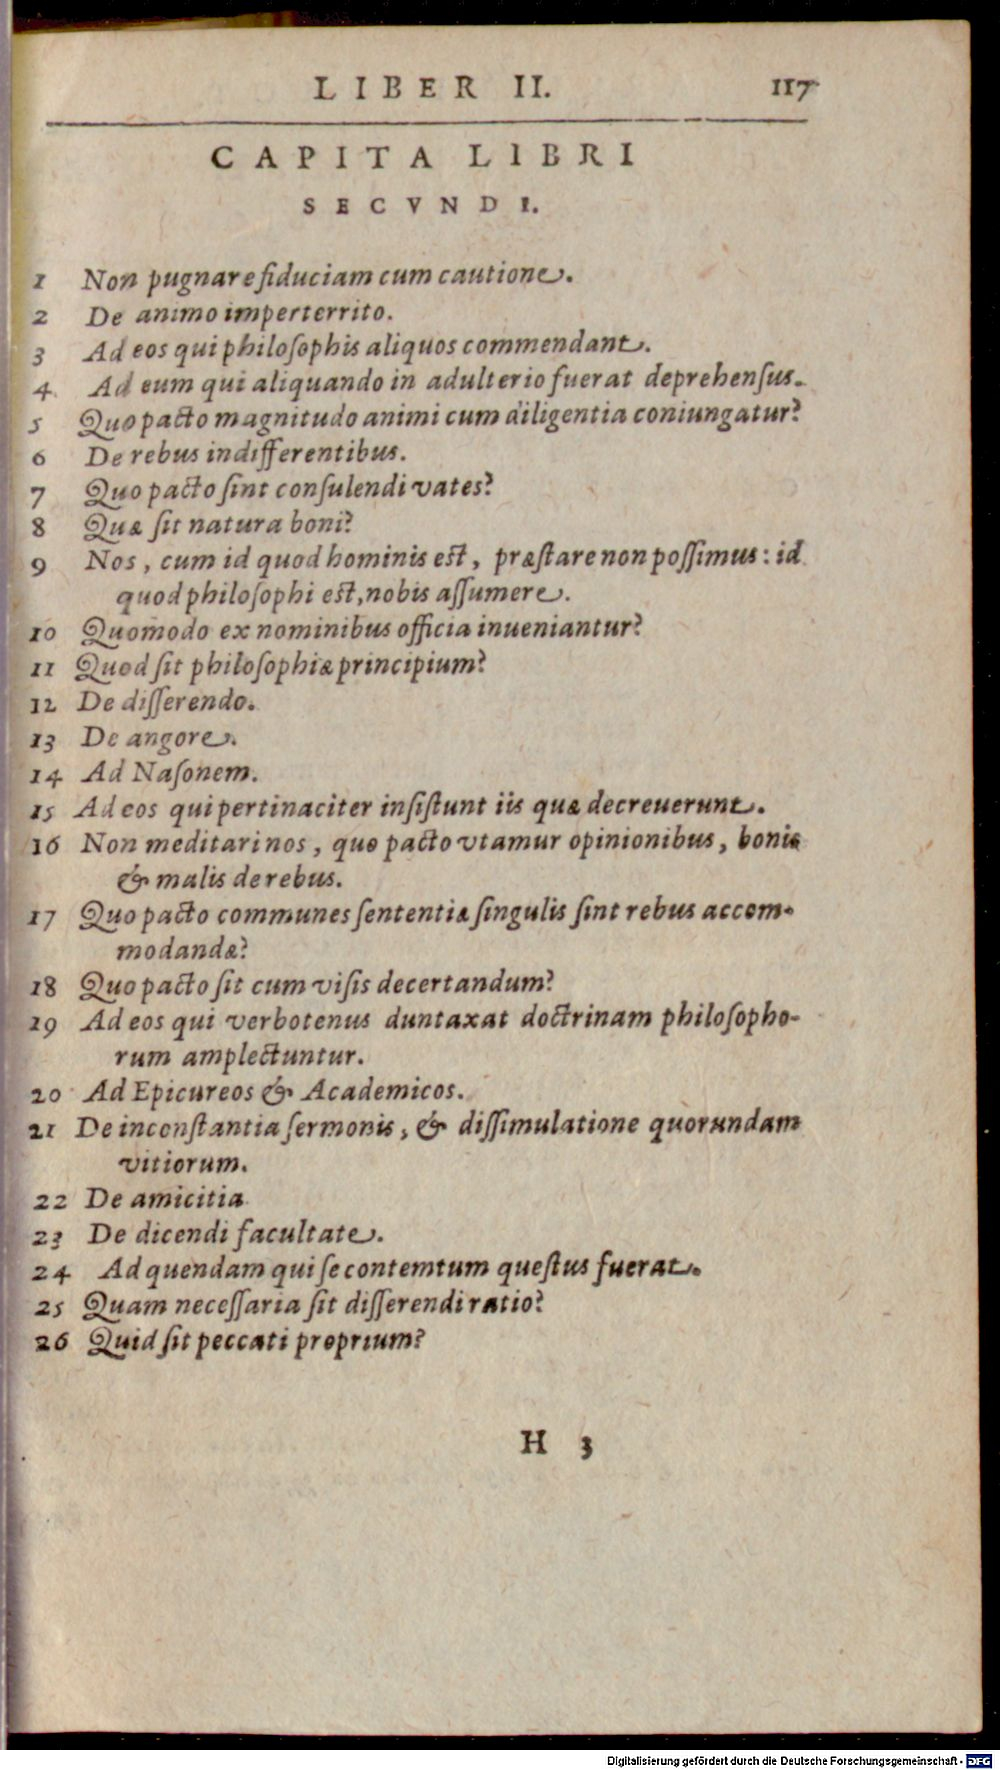 LIBER II. 117
CAPITA LIBRI
SECVNDI.
1 Non pugnare fiduciam cum cautione.
2 De animo imperterrito.
3 Ad eos qui philoſophis aliquos commendant.
4 Ad eum qui aliquando in adulterio fuerat deprehenſus.
5 Quo pacto magnitudo animi cum diligentia coniungatur?
6 De rebus indifferentibus.
7 Quo pacto ſint conſulendi vates?
8 Quæ ſit natura boni?
9 Nos, cum id quod hominis eſt, præſtare non poſſimus: id
quod philoſophi eſt, nobis aſſumere.
10 Quomodo ex nominibus officia inueniantur?
11 Quod ſit philoſophiæ principium?
12 De diſſerendo.
13 De angore.
14 Ad Naſonem.
15 Ad eos qui pertinaciter inſiſtunt iis quæ decreuerunt.
16 Non meditari nos, quo pacto vtamur opinionibus, bonis
& malis de rebus.
17 Quo pacto communes ſententiæ ſingulis ſint rebus accom-
modandæ?
18 Quo pacto ſit cum viſis decertandum?
19 Ad eos qui verbotenus duntaxat doctrinam philoſopho-
rum amplectuntur.
20 Ad Epicureos & Academicos.
21 De inconſtantia ſermonis, & diſſimulatione quorundam
vitiorum.
22 De amicitia
23 De dicendi facultate.
24 Ad quendam qui ſe contemtum queſtus fuerat.
25 Quam neceſſaria ſit diſſerendi ratio?
26 Quid ſit peccati proprium?
H 3
Digitalisierung gefördert durch die Deutsche Forschungsgemeinschaft - DFG